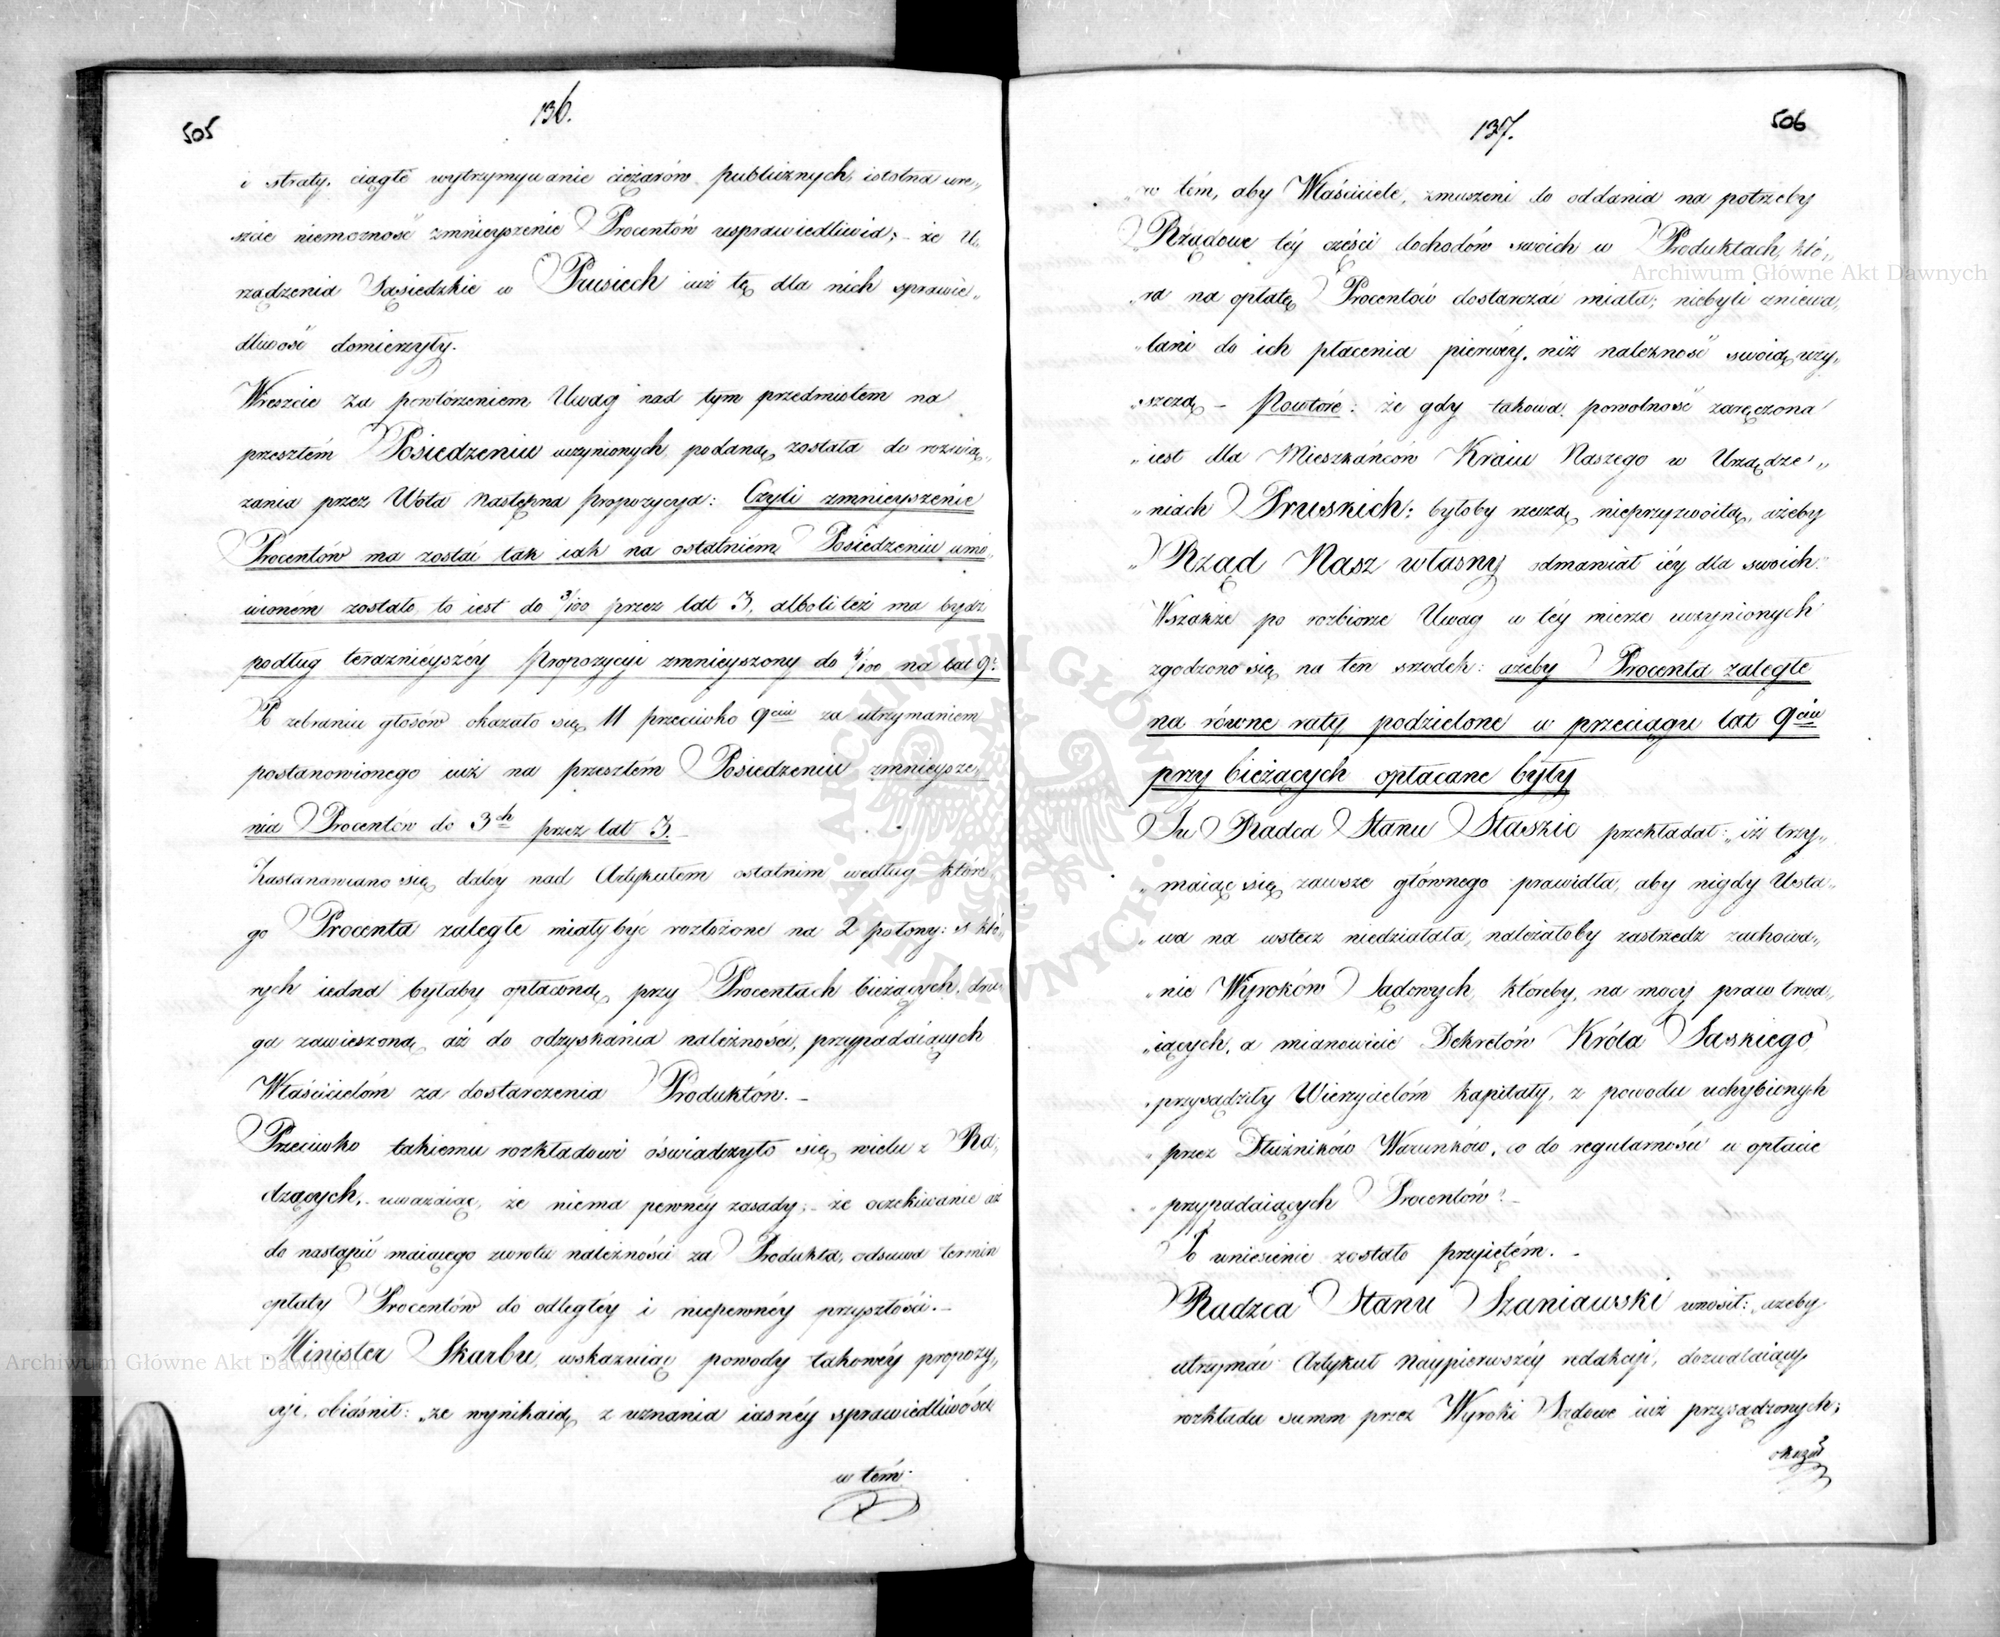 505
136.
i straty, ciągłe wytrzymywanie ciężarów publicznych, istotna wre„
szcie niemożność zmnieyszenie Procentów usprawiedliwia; – że U„
rządzenia Sąsiedzkie w Prusiech iuż tę dla nich sprawie„
dliwość domierzyły.
Wreszcie za powtórzeniem Uwag nad tym przedmiotem na
przeszłém Posiedzeniu uczynionych, podaną została do rozwią„
zania przez Wota następna Propozycya: Czyli zmnieyszenie
Procentów ma zostać tak iak na ostatniem Posiedzeniu umó„
wioném zostało, to iest do 3/100 przez lat 3, alboli też ma bydź
podług teraznieyszéy Propozycyi zmnieyszony do 4/100 na lat 9ć.
Po zebraniu głosów okazało się 11 przeciwko 9ciu za utrzymaniem
postanowionego iuż na przeszłém Posiedzeniu zmnieysze„
nia Procentów do 3ch przez lat 3. –
Zastanawiano się daley nad Artykułem ostatnim według które„
go Procenta zaległe miały być rozłożone na 2 połowy: z któ„
rych iedna byłaby opłaconą przy Procentach bieżących, dru„
ga zawieszoną aż do odzyskania należności, przypadaiących
Właścicielóm za dostarczenia Produktów. –
Przeciwko takiemu rozkładowi oświadczyło się wielu z Ra„
dzących, uważaiąc, że niema pewnéy zasady; – że oczekiwanie aż
do nastąpić maiącego zwrotu należności za Produkta, odsuwa termin
opłaty Procentów do odległéy i niepewnéy przyszłości. –
Minister Skarbu, wskazuiąc powody takowéy propozy„
cyi, obiaśnił: „że wynikaią z uznania iasnéy sprawiedliwości
w tém
506
137.
„w tém, aby Właściciele, zmuszeni do oddania na potrzeby
„Rządowe téy części dochodów swoich w Produktach, któ„
„ra na opłatę Procentów dostarczać miała; niebyli zniewa„
„lani do ich płacenia pierwéy, niż należność swoią uzy„
„szczą – Powtóre: że gdy takowa powolność zaręczona
„iest dla Mieszkańców Kraiu Naszego w Urządze„
„niach Pruskich; byłoby rzeczą nieprzyzwoitą, ażeby
„Rząd Nasz własny odmawiał iéy dla swoich."
Wszakże po rozbiorze Uwag w téy mierze uczynionych
zgodzono się na ten srzodek: ażeby Procenta zaległe
na równe raty podzielone w przeciągu lat 9ciu
przy bieżących opłacane były
Tu Radca Stanu Staszic przekładał: „iż trzy„
„maiąc się zawsze głównego prawidła, aby nigdy Usta„
„wa na wstecz niedziałała, należałoby zastrzedz zachowa„
„nie Wyroków Sądowych, któreby, na mocy praw trwa„
„iących, a mianowicie Dekretów Króla Saskiego
„przysądziły Wierzycielóm kapitały, z powodu uchybionych
„przez Dłużników Warunków, co do regularności w opłacie
„przypadaiących Procentów". –
To wniesienie zostało przyiętém. –
Radzca Stanu Szaniawski wnosił: „ażeby
utrzymać Artykuł naypierwszéy redakcyi, dozwalaiący
rozkładu summ przez Wyroki Sądowe iuż przysądzonych;
okazał